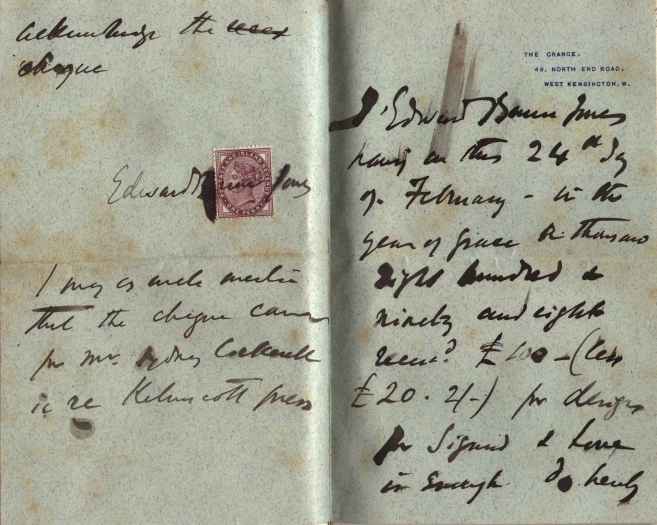 THE GRANGE,
49, NORTH END ROAD,
WEST KENSINGTON, W.
I Edward Burne Jones
having on this 24th day
of February - in the
year of grace one thousand
eight hundred &
ninety and eight
recevd £100 - (less
£20 . 2/-) for designs
for Sigurd & Love
is Enough do hereby
acknowledge the
cheque
Edward Burne Jones
I may as well mention
that the cheque came
for Mr. Sydney Cockerell
is re Kelmscott press